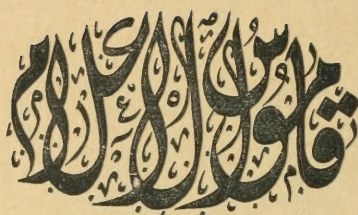 قاموس الاعلام